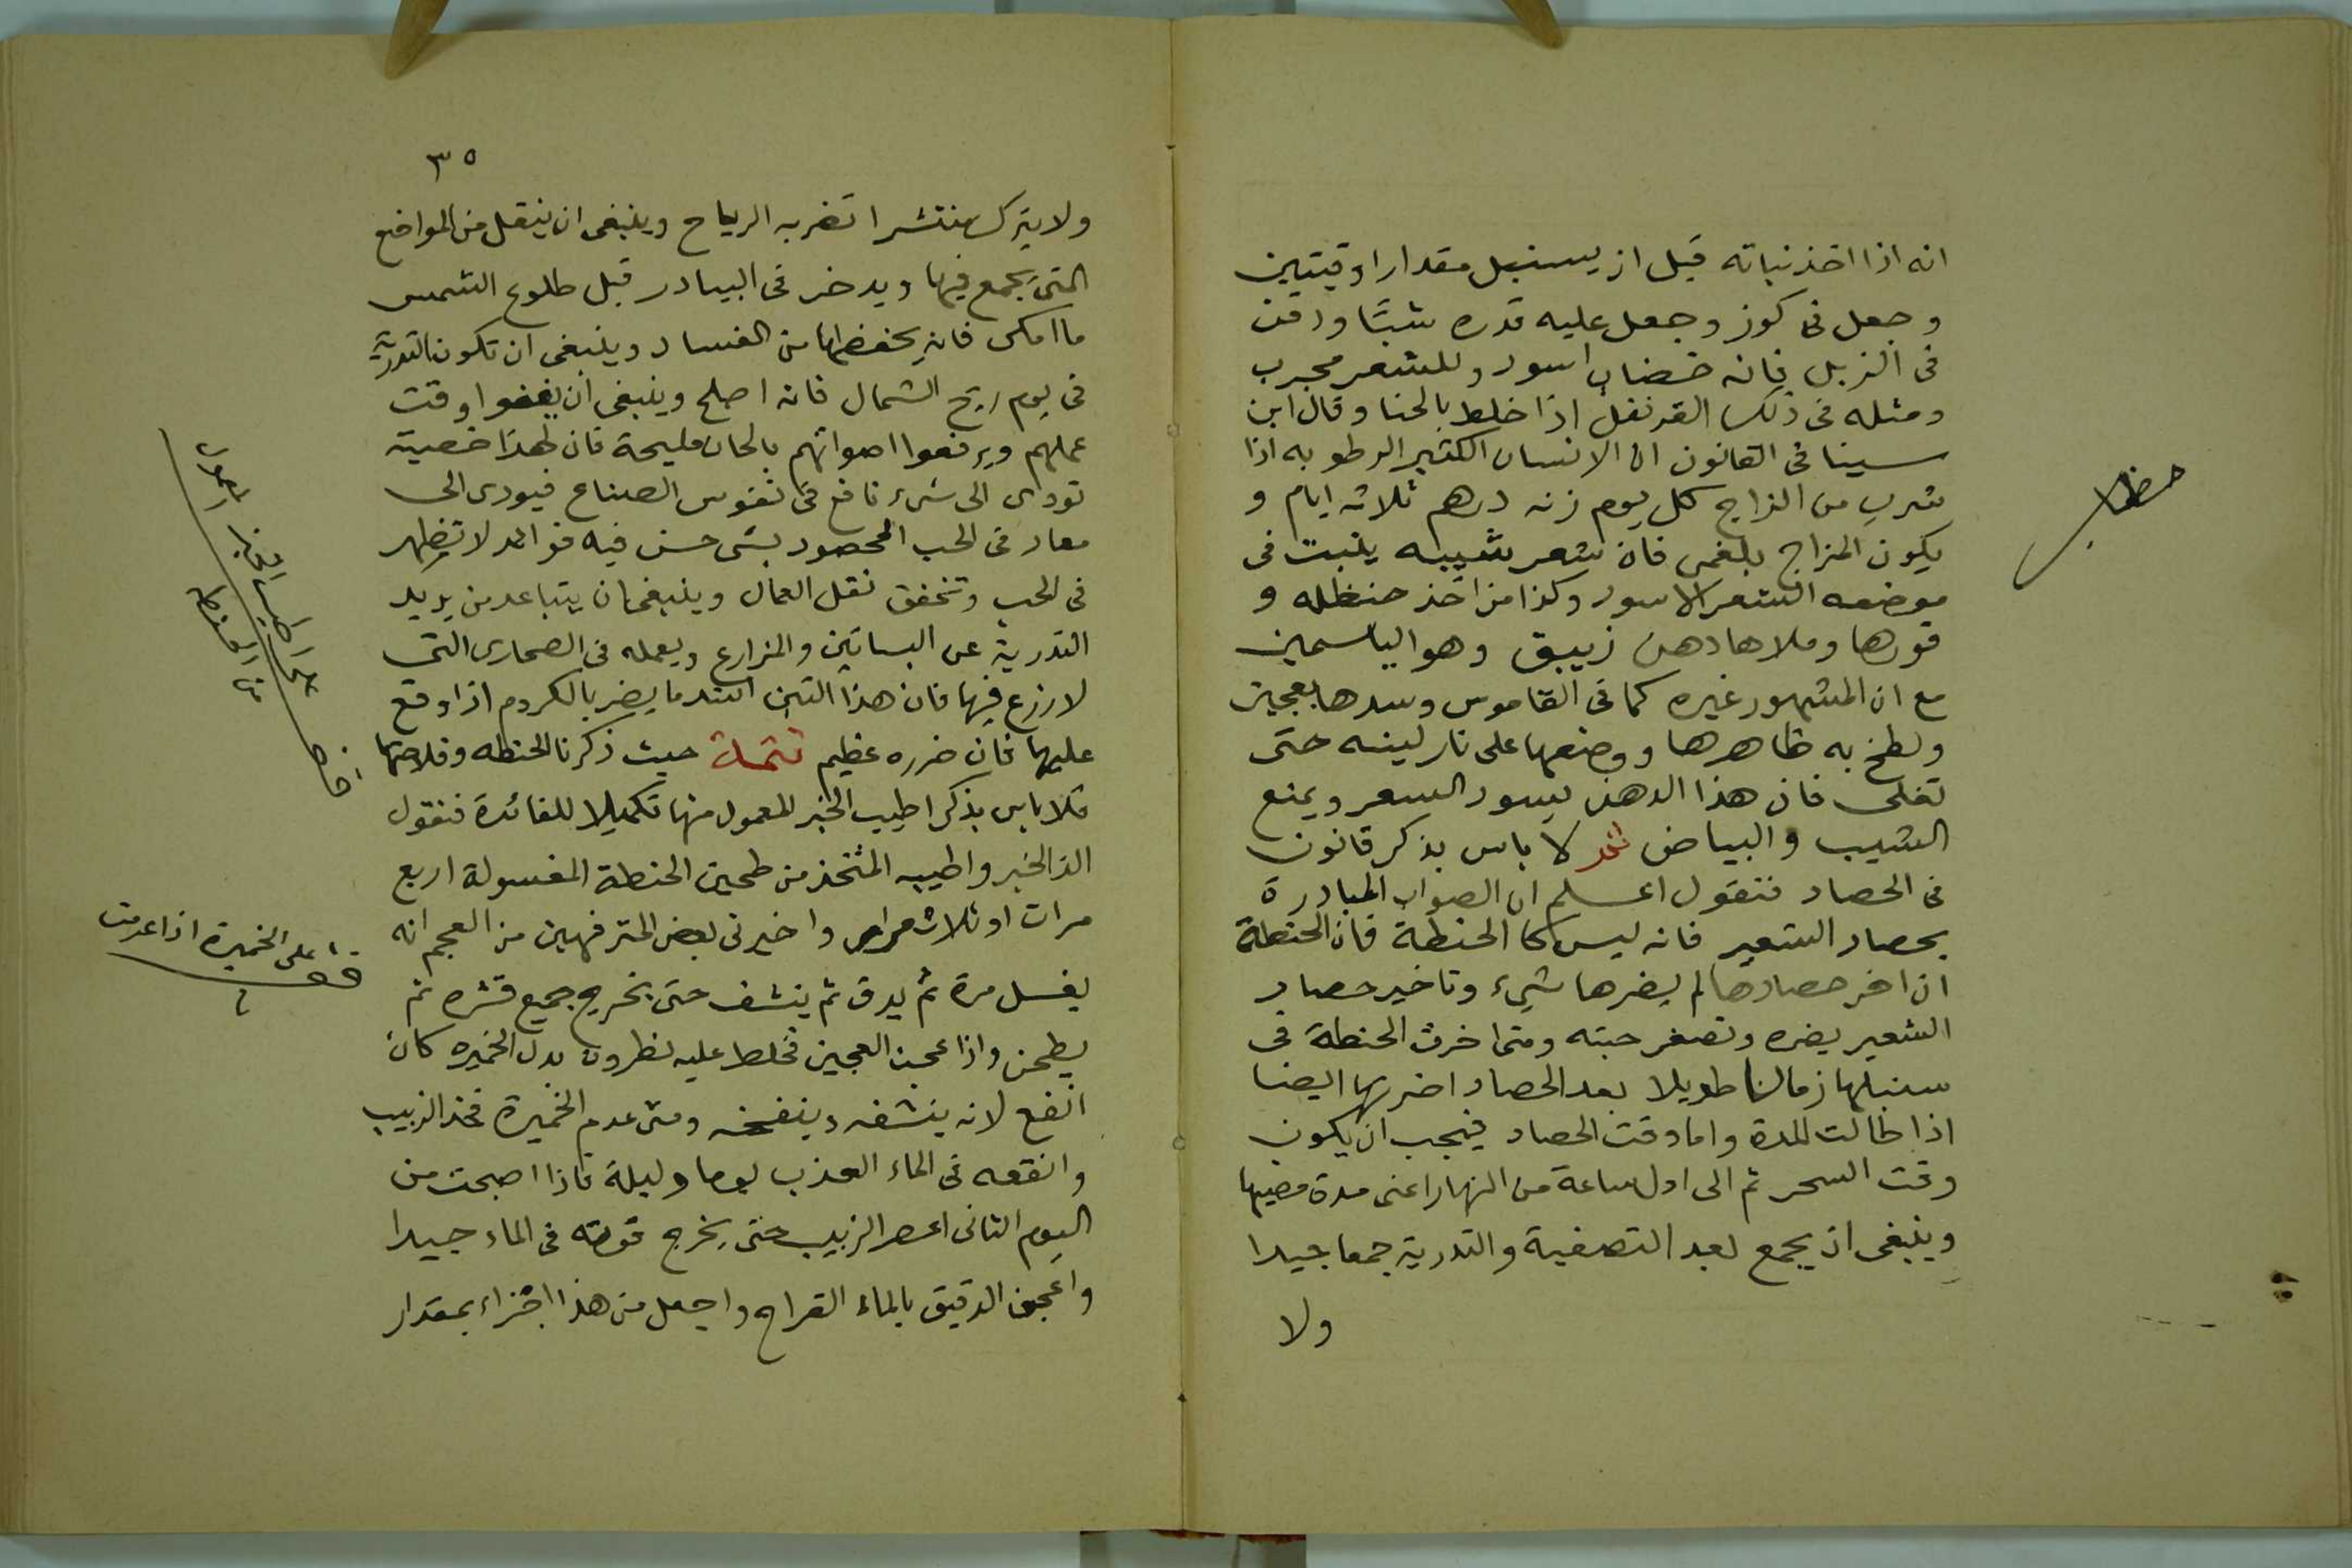 انه اذا اخذ نباته قبل ان يسنبل مقدار اوقيتين
وجعل فى كوز وجعل عليه قدره شبًا ودفن
فى الزبل فانه خضاب اسود وللشعر مجرب
ومثله فى ذلك القرنفل اذا خلط بالحنا وقال ابن
سينا فى القانون ان الانسان الكثير الرطوبه اذا
شرب من الزاج كل يوم زنه درهم ثلاثه ايام و
يكون المزاج بلغمى فان شعر شيبه ينبت فى
موضعه الشعر الاسود وكذا من اخذ حنظله و
قورها وملاها دهن زيبق وهو الياسمين
مع ان المشهور غيره كما فى القاموس وسدها بعجين
ولطخ به ظاهرها ووضعها على نار لينه حتى
تغلى فان هذا الدهن يسود الشعر ويمنع
الشيب والبياض ثم لا باس بذكر قانون
فى الحصاد فنقول اعلم ان الصواب المبادرة
بحصاد الشعير فانه ليس كا الحنطة فان الحنطة
ان اخر حصادها لم يضرها شىء وتاخير حصاد
الشعير يضره وتصغر حبته ومتى اخرت الحنطة فى
سنبلها زمانا طويلا بعد الحصاد اضر بها ايضا
اذا طالت المدة واما وقت الحصاد فيجب ان يكون
وقت السحر ثم الى اول ساعة من النهار اعنى مدة مضيها
وينبغى ان يجمع بعد التصفية والتدرية جمعا جيدا
ولا
٣٥
ولا يترك منتشرا تضربه الرياح وينبغى ان ينقل من المواضع
التى يجمع فيها ويدخر فى البيادر قبل طلوع الشمس
ما امكن فانه يحفظها من الفساد وينبغى ان تكون التدرية
فى يوم ريح الشمال فانه اصلح وينبغى ان يغنوا وقت
عملهم ويرفعوا اصواتهم بالحان مليحة فان لهذا خصية
تودى الى شىء نافع فى نفوس الصناع فيودى الى
معاد فى الحب المحصود بشى حسن فيه فوائد لا تظهر
فى الحب وتخفف نقل العمال وينبغى ان يتباعد من يريد
التدرية عن البساتين والمزارع ويعمله فى الصحارى التى
لا زرع فيها فان هذا التبن اشد ما يضر بالكروم اذا وقع
عليها فان ضرره عظيم تتمة حيث ذكرنا الحنطه وفلاحتها
فلا باس بذكر اطيب الخبز المعمول منها تكميلا للفائدة فنقول
الذ الخبز واطيبه المتخذ من طحين الحنطة المغسولة اربع
مرات او ثلاث مرات واخبرنى بعض المترفهين من العجم انه
يغسل مرة ثم يدق ثم ينشف حتى يخرج جميع قشره ثم
يطحن واذا عجن العجين فخلط عليه نطرون بدل الخميره كان
انفع لانه ينشفه وينفخه ومتى عدم الخميرة فخذ الزبيب
وانقعه فى الماء العذب يوما وليلة فاذا اصبحت من
اليوم الثانى اعصر الزبيب حتى يخرج قوته فى الماء جيدا
واعجن الدقيق بالماء القراح واجعل من هذا اجزاء بمقدار
قف على الخميرة اذا عدمت